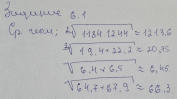 Задание 6.1
Ср. геом.; ²√1184·1244 ≈ 1213,6
²√19,4·22,2 ≈ 20,75
√6,4·6,5 ≈ 6,45
√64,7·67,9 ≈ 66,3